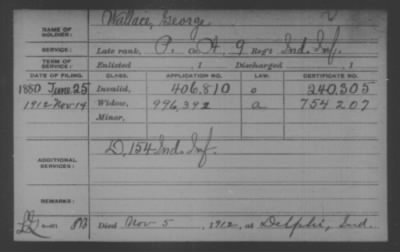 NAME OF SOLDIER: Wallace, George
SERVICE: Late rank, P. Co. A, 9 Reg't Ind. Inf.
TERM OF SERVICE: Enlisted , 1 Discharged , 1
DATE OF FILING. CLASS. APPLICATION NO. LAW. CERTIFICATE NO.
1880 25 Invalid, 406.810 240.305
1912 Nov 14 Widow, 996,392 a 754 207
Minor,
ADDITIONAL SERVICES: D, 154 Ind. Inf.
REMARKS:
Died Nov 5 , 1912, at Delphi, Ind.